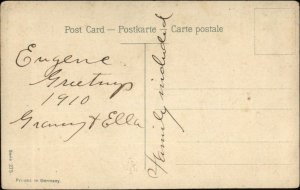 Post Card – Postkarte – Carte postale
Eugene
Greetings
1910
Granny & Ella
Family included
Printed in Germany.